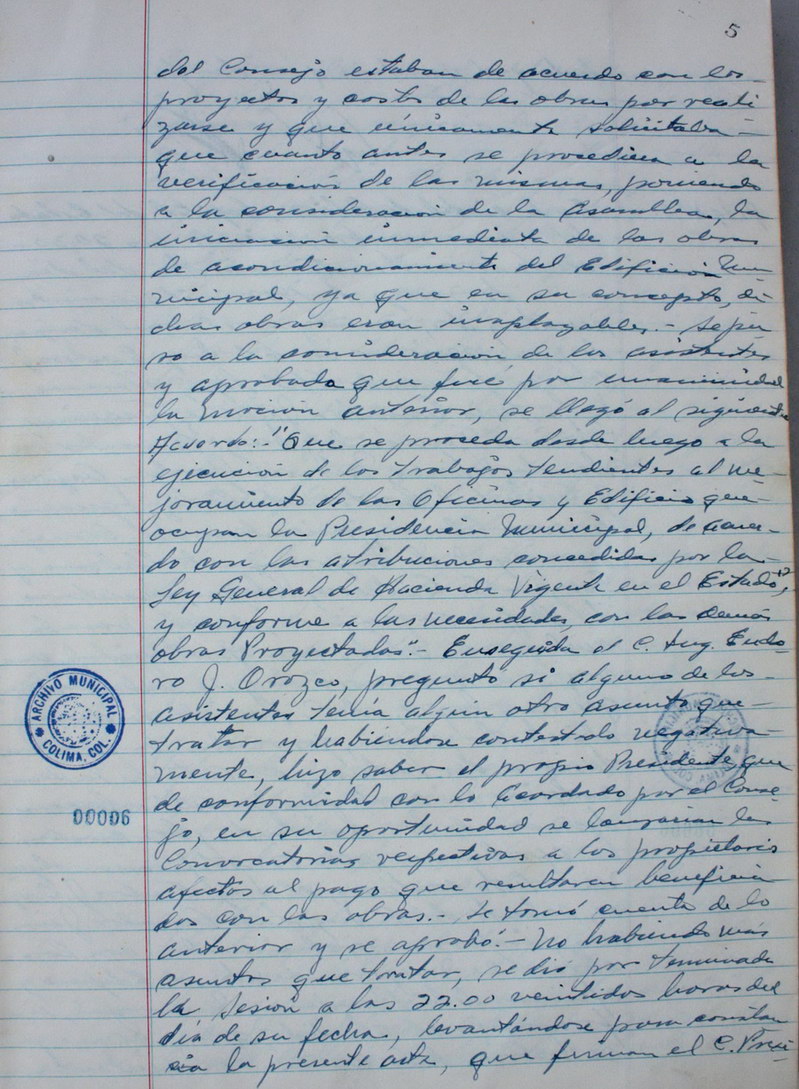 5
del Consejo estaban de acuerdo con los
proyectos y costos de las obras por reali
zarse y que únicamente solicitaba
que cuanto antes se procediera a la
verificación de las mismas, poniendo
a la consideración de la Asamblea, la
iniciación inmediata de las obras
de acondicionamiento del Edificio Mu-
nicipal, ya que en su concepto, di
chas obras eran inaplazables.- Se pu
so a la consideración de los asistentes
y aprobada que fué por unanimidad
la moción anterior, se llegó al siguiente
Acuerdo:- "Que se proceda desde luego a la
ejecución de los trabajos tendientes al me-
joramiento de las Oficinas y Edificio que
ocupan la Presidencia Municipal, de acuer-
do con las atribuciones concedidas por la
Ley General de Hacienda Vigente en el Estado,
y conforme a las necesidades, con las demás
obras Proyectadas".- Enseguida el C. Ing.
ro J. Orozco, preguntó si alguno de los
asistentes tenía algún otro asunto que
tratar y habiéndose contestado negativa-
mente, hizo saber el propio Presidente, que
de conformidad con lo acordado por el Conse-
jo, en su oportunidad se lanzarían las
Convocatorias respectivas a los propietarios
afectos al pago que resultaren beneficia
dos con las obras.- Se tomó cuenta de lo
anterior y se aprobó.- No habiendo más
asuntos que tratar, se dió por terminada
la sesión a las 22.00 veintidos horas del
día de su fecha, levantándose para constan
cia la presente acta, que firman el C. Presi-
ARCHIVO MUNICIPAL
COLIMA, COL.
00006